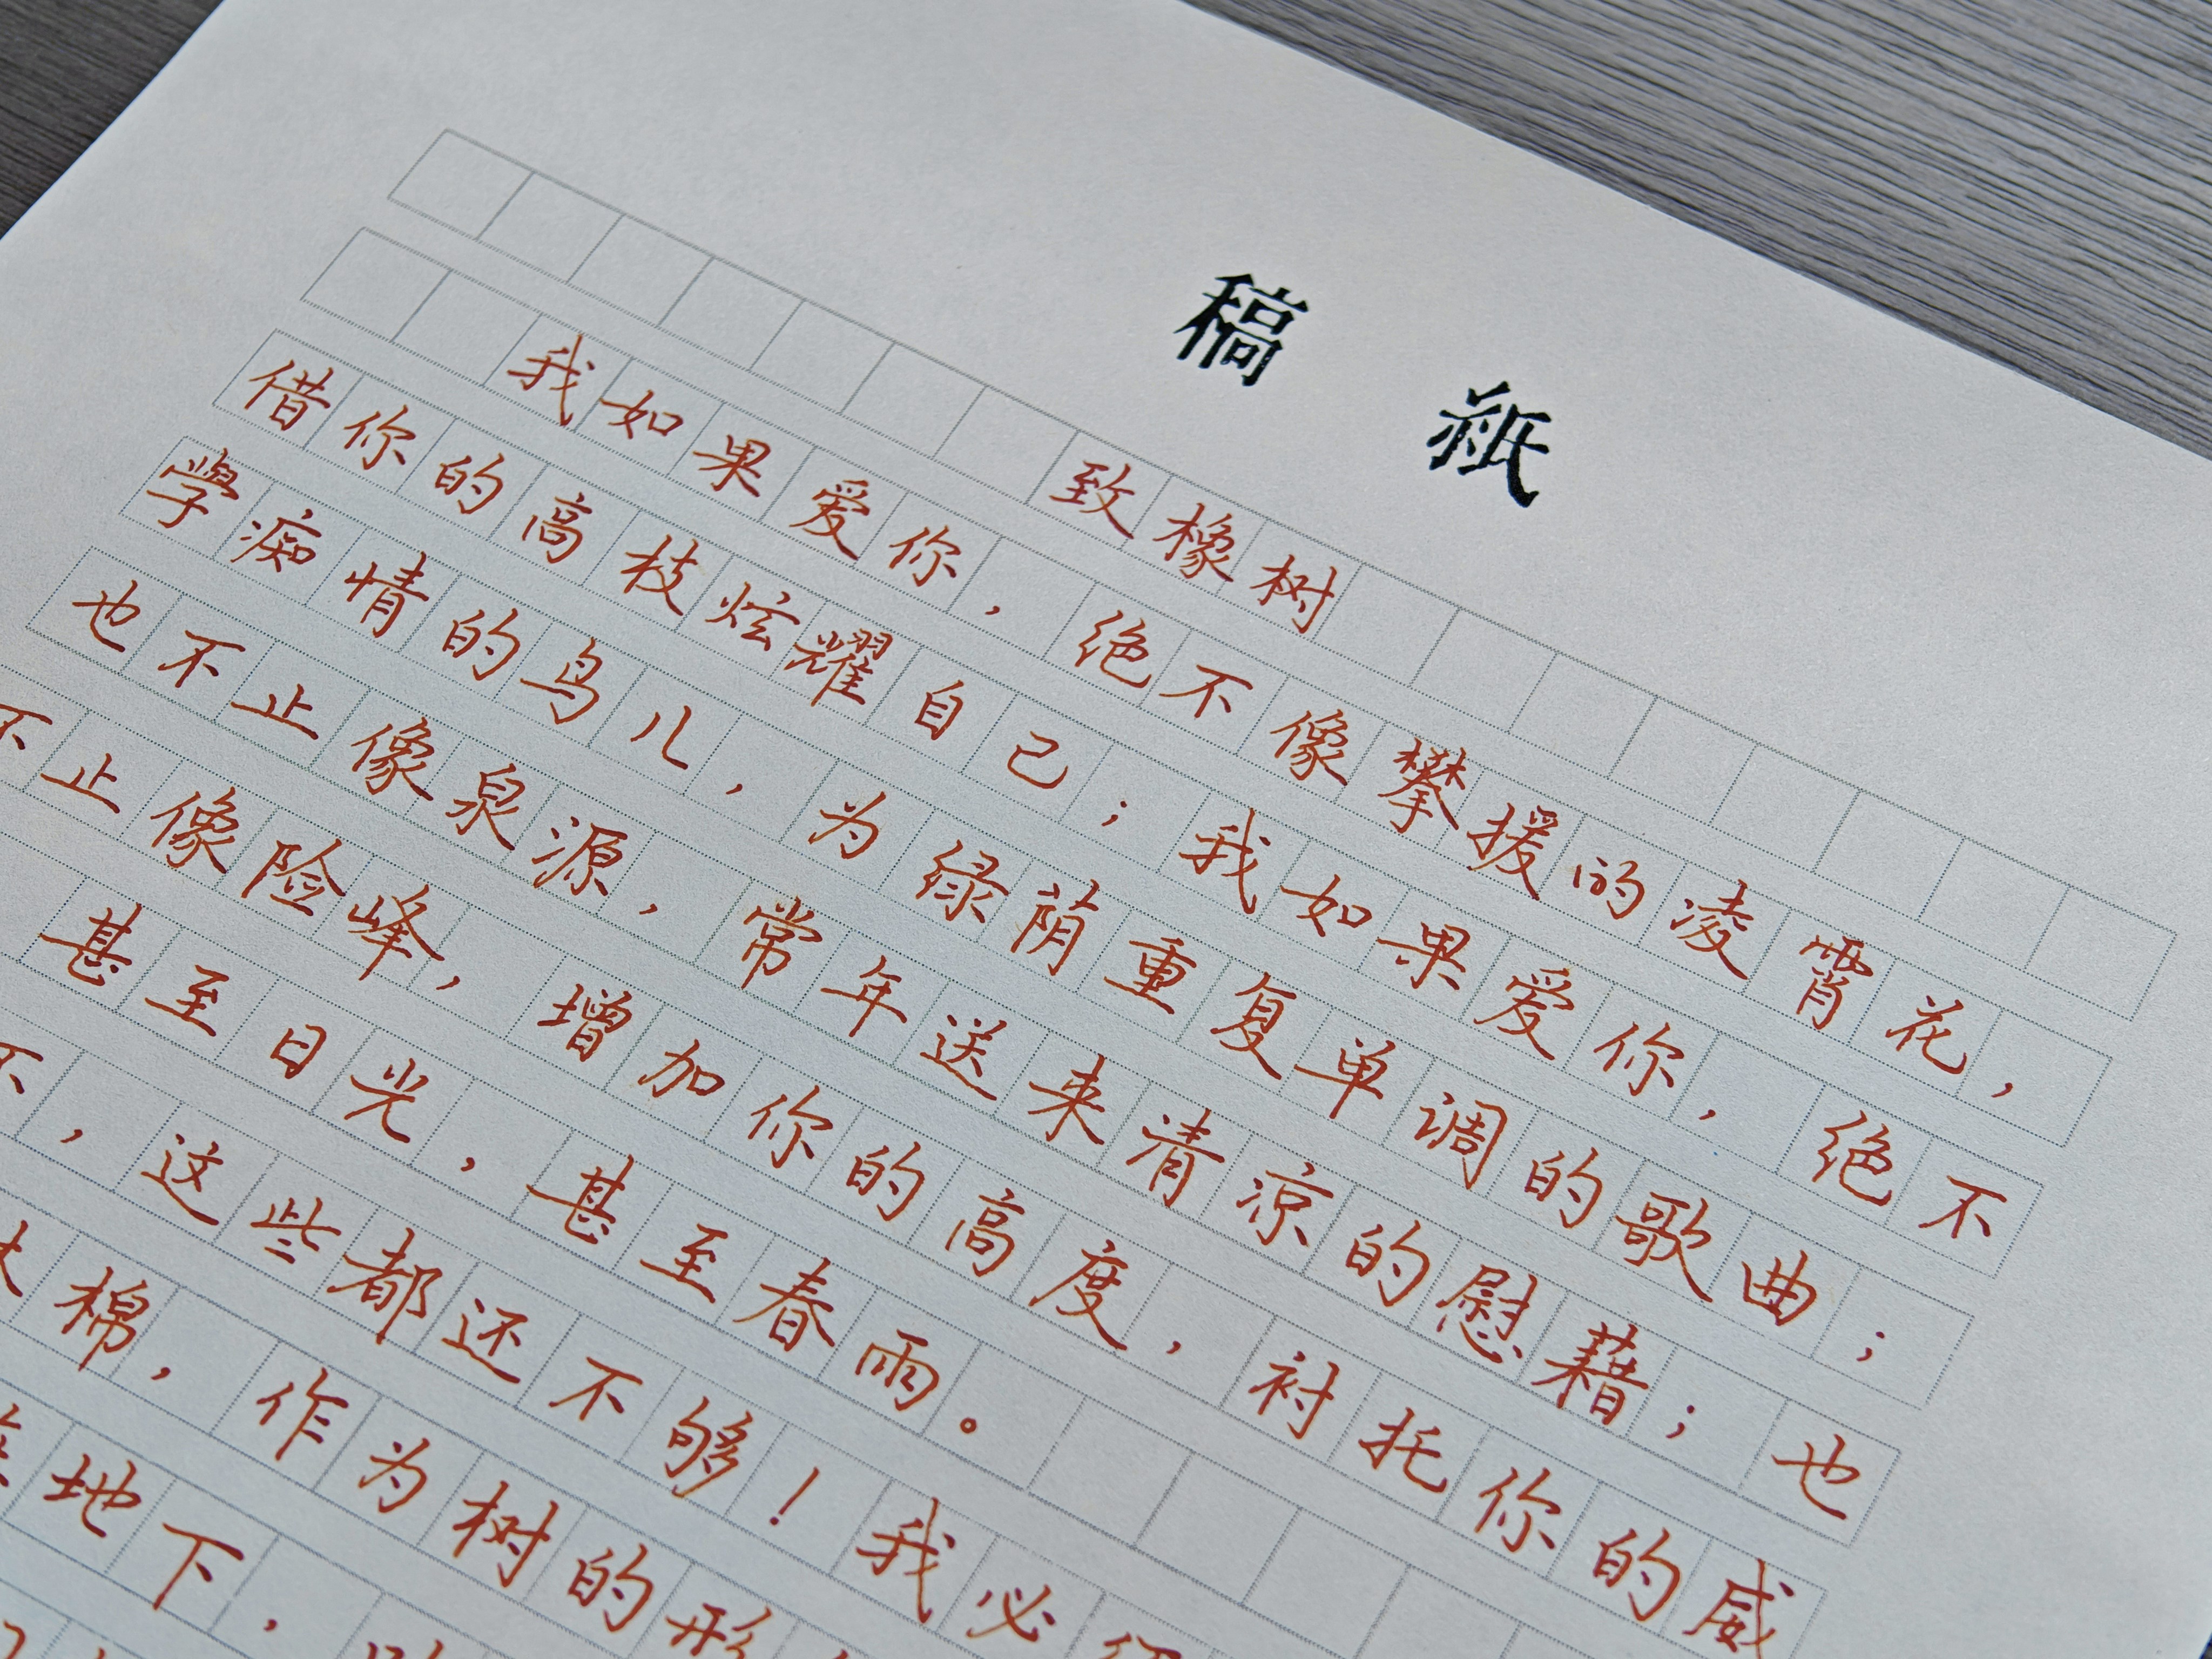 稿紙
致橡树
我如果爱你，绝不像攀援的凌霄花，
借你的高枝炫耀自己；我如果爱你，绝不
學痴情的鸟儿，为绿荫重复单调的歌曲；
也不止像泉源，常年送来清凉的慰藉；也
不止像险峰，增加你的高度，衬托你的威
甚至日光，甚至春雨。
不，这些都还不够！我必
棉，作为树的形
地下，